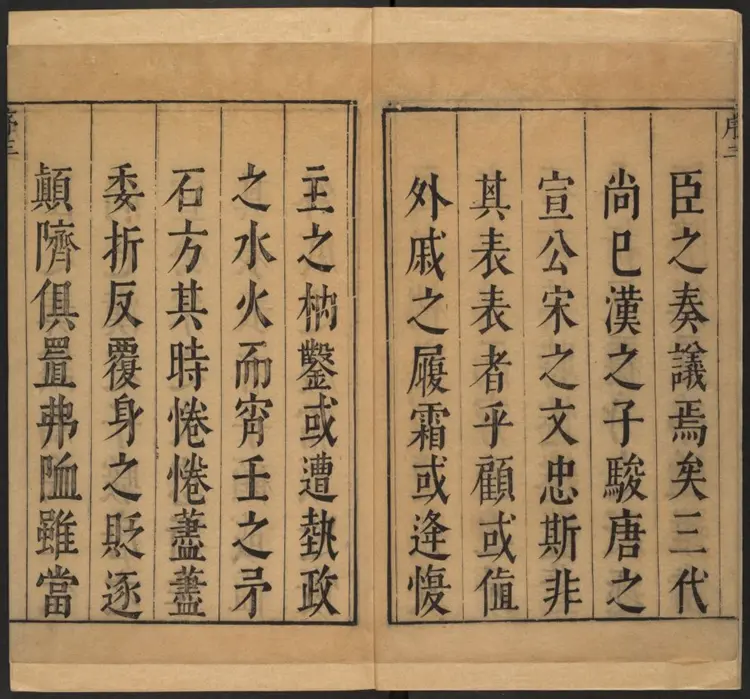 序二
臣之奏議焉矣三代
尚巳漢之子駿唐之
宣公宋之文忠斯非
其表表者乎顧或值
外戚之履霜或逢愎
主之枘鑿或遭執政
之水火而宵壬之矛
石方其時惓惓藎藎
委折反覆身之貶逐
顛隮俱置弗卹雖當
序三